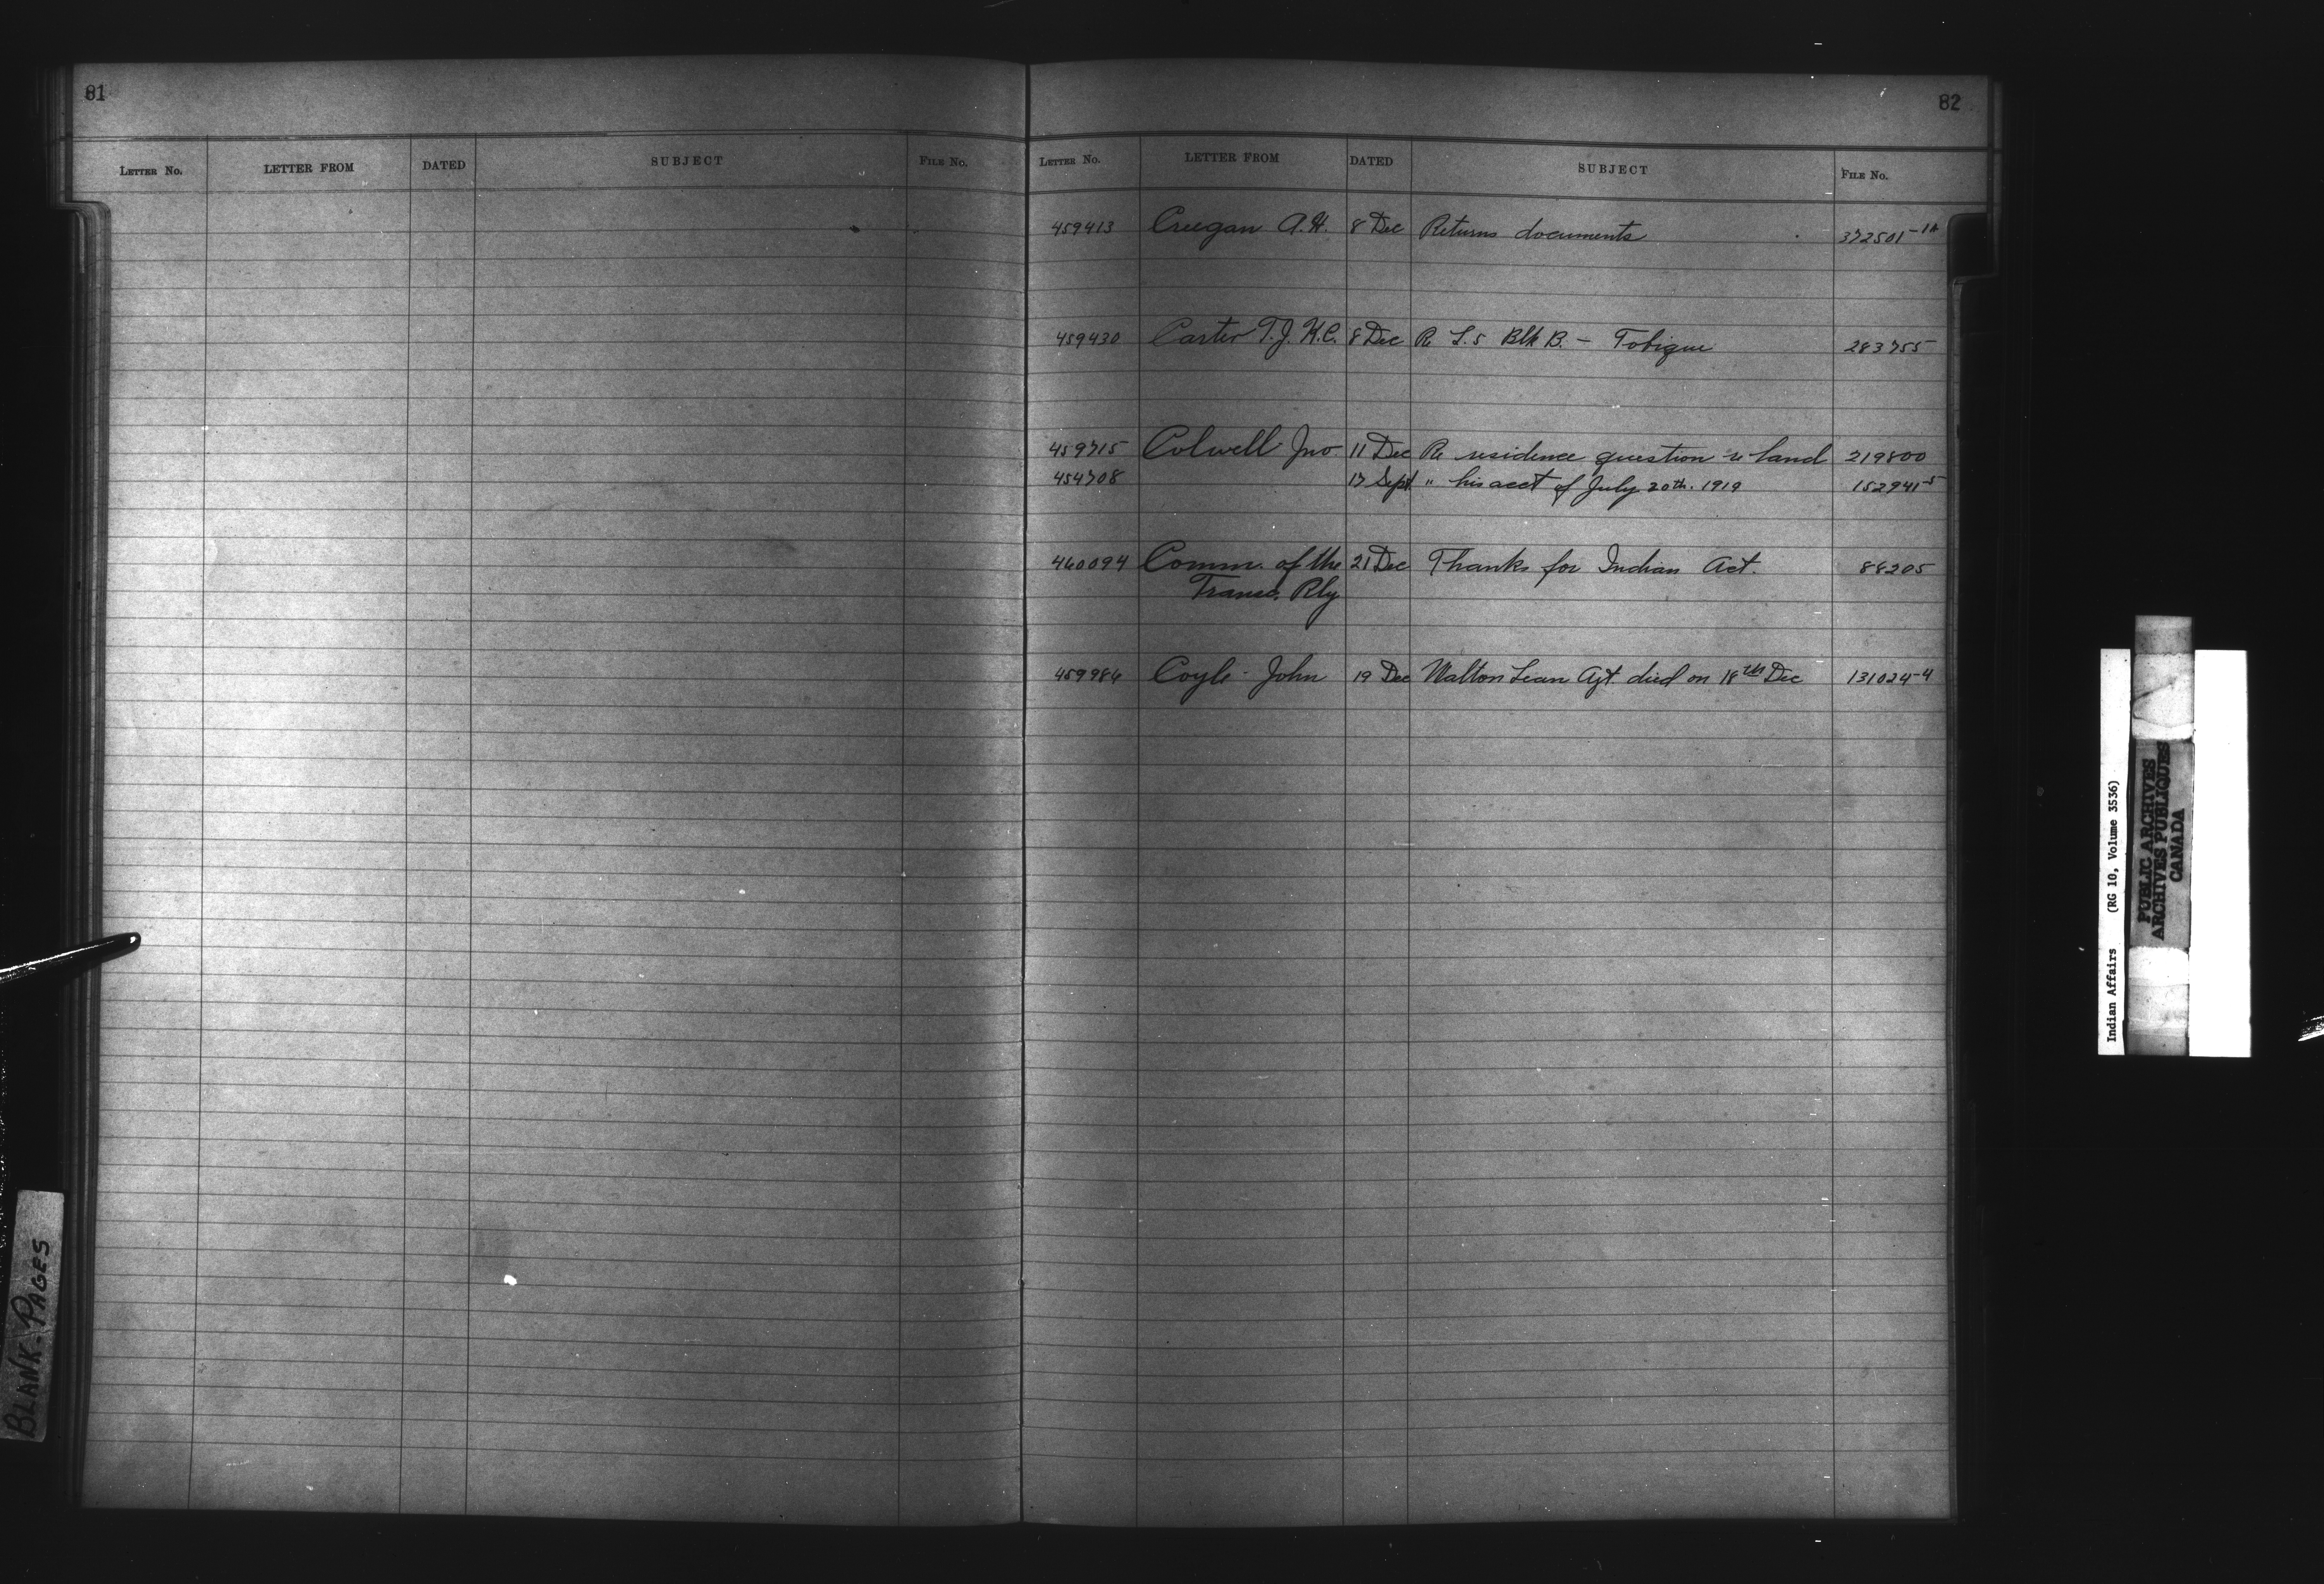 81
LETTER No. LETTER FROM DATED SUBJECT FILE No.
82
LETTER No. LETTER FROM DATED SUBJECT FILE No.
459413 Creegan A.H. 8 Dec Returns documents 372501-1A
459430 Carter T.J. K.C. 8 Dec Re L.5 Blk B. – Tobique 283755
459715 Colwell Jno 11 Dec Re residence question re land 219800
454708 17 Sept " his acct of July 20th. 1919 152941-5
460094 Comm. of the 21 Dec Thanks for Indian Act. 88205
Transc. Rly
459986 Coyle John 19 Dec Walton Lean Agt. died on 18th Dec 131024-4
BLANK-PAGES
Indian Affairs (RG 10, Volume 3536)
PUBLIC ARCHIVES
ARCHIVES PUBLIQUES
CANADA